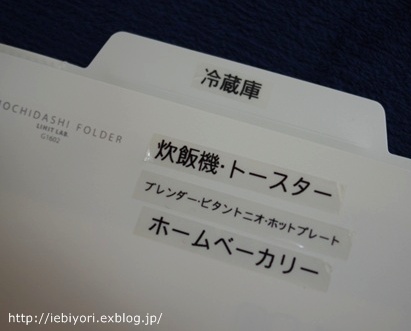 冷蔵庫
MOCHIDASHI FOLDER
LIHIT LAB.
G1602
炊飯機・トースター
ブレンダー・ビタントニオ・ホットプレート
ホームベーカリー
http://iebiyori.exblog.jp/